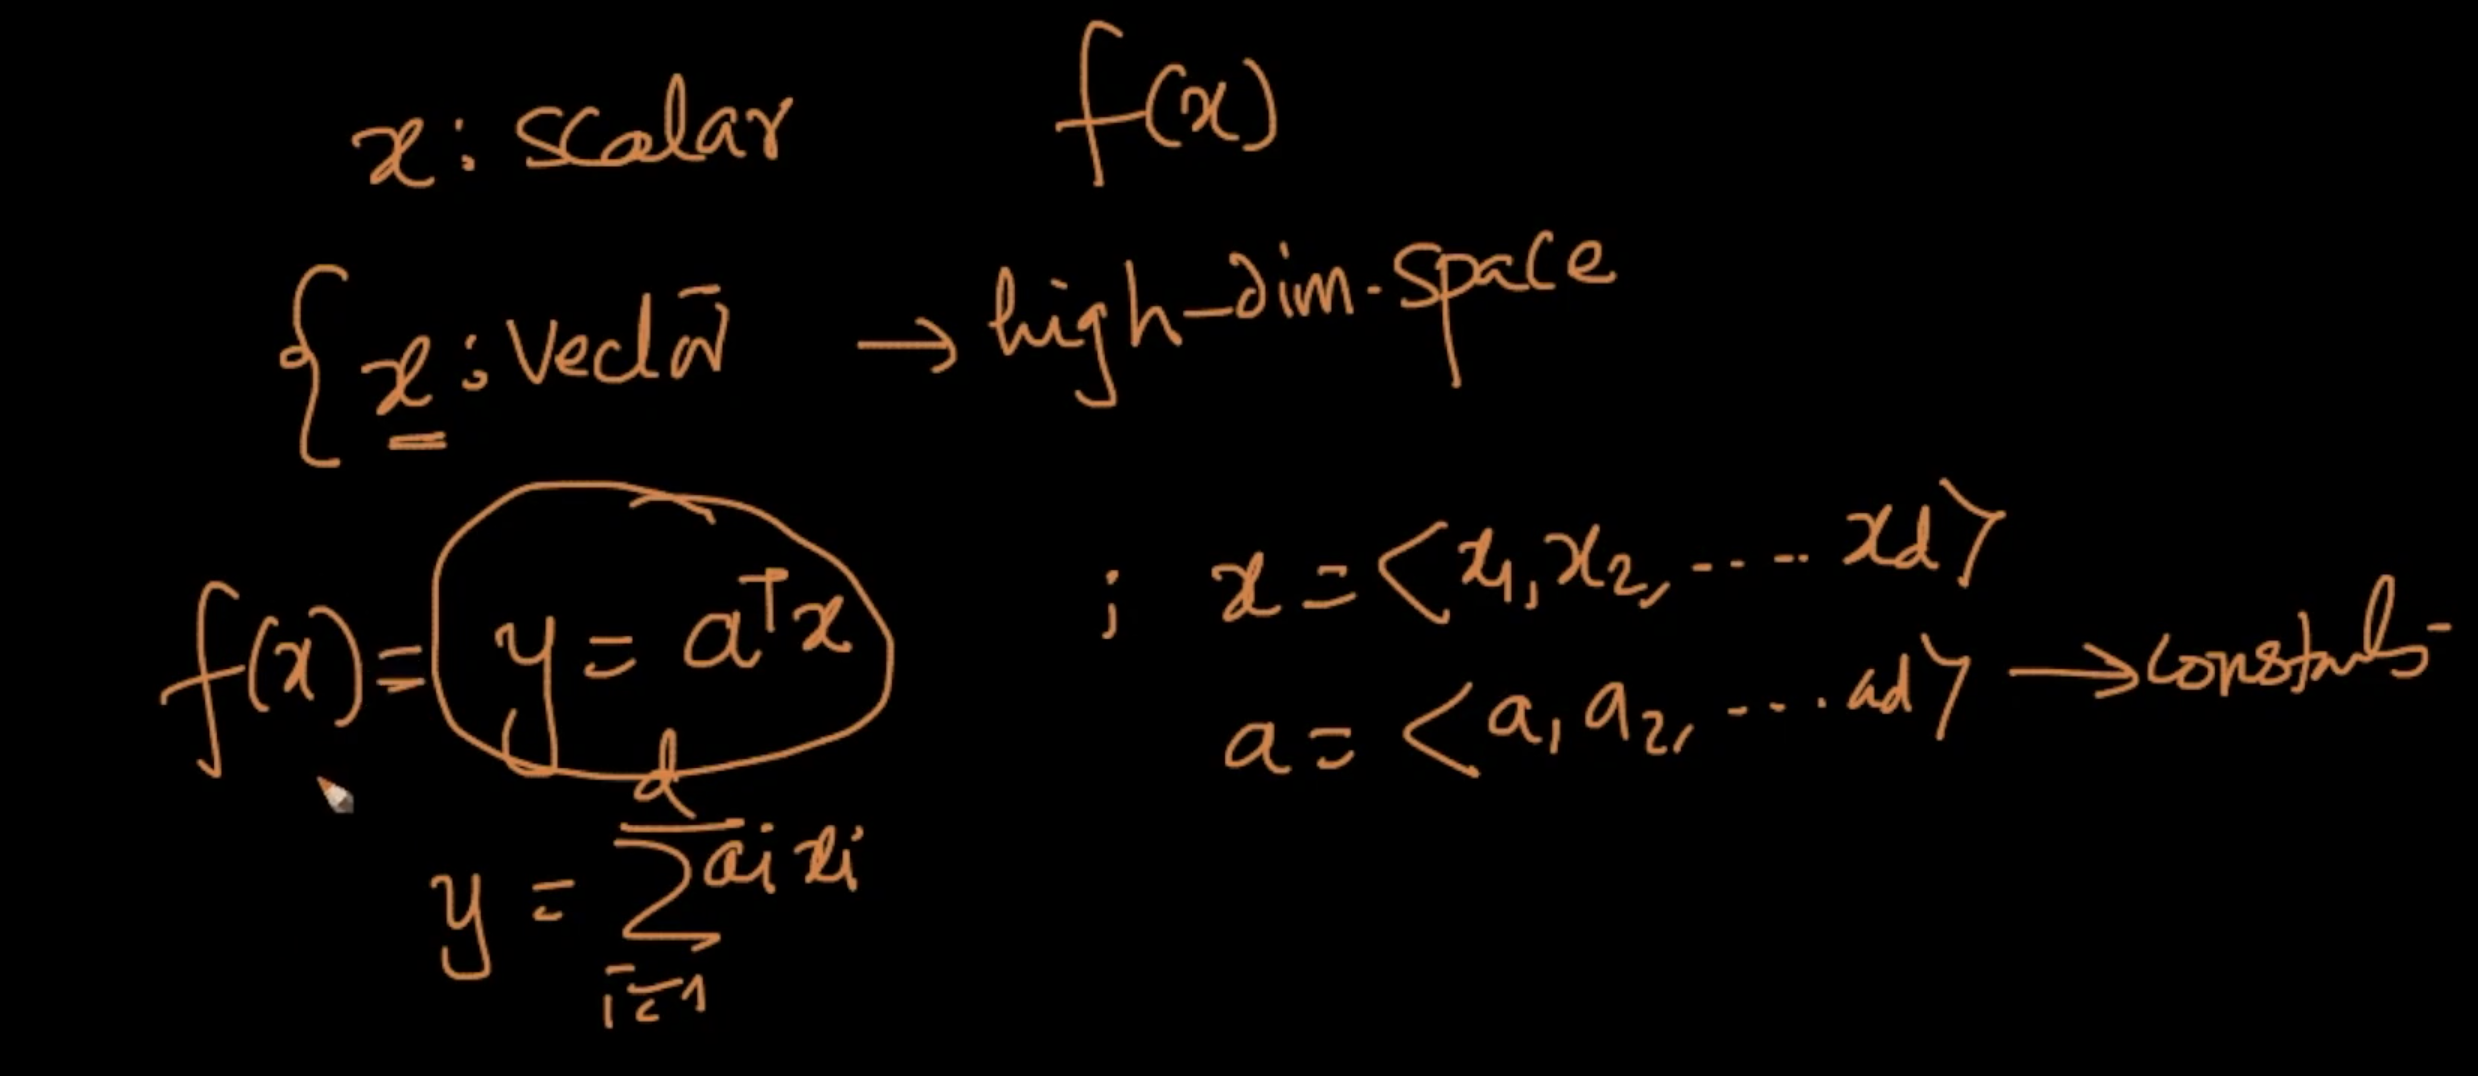 x : scalar f(x)
{ x : vector → high-dim-space
f(x) = y = aᵀx ; x = <x₁, x₂, ---- xd>
a = <a₁ a₂, --- ad> → constants
y = ∑ᵢ₌₁ᵈ aᵢ xᵢ